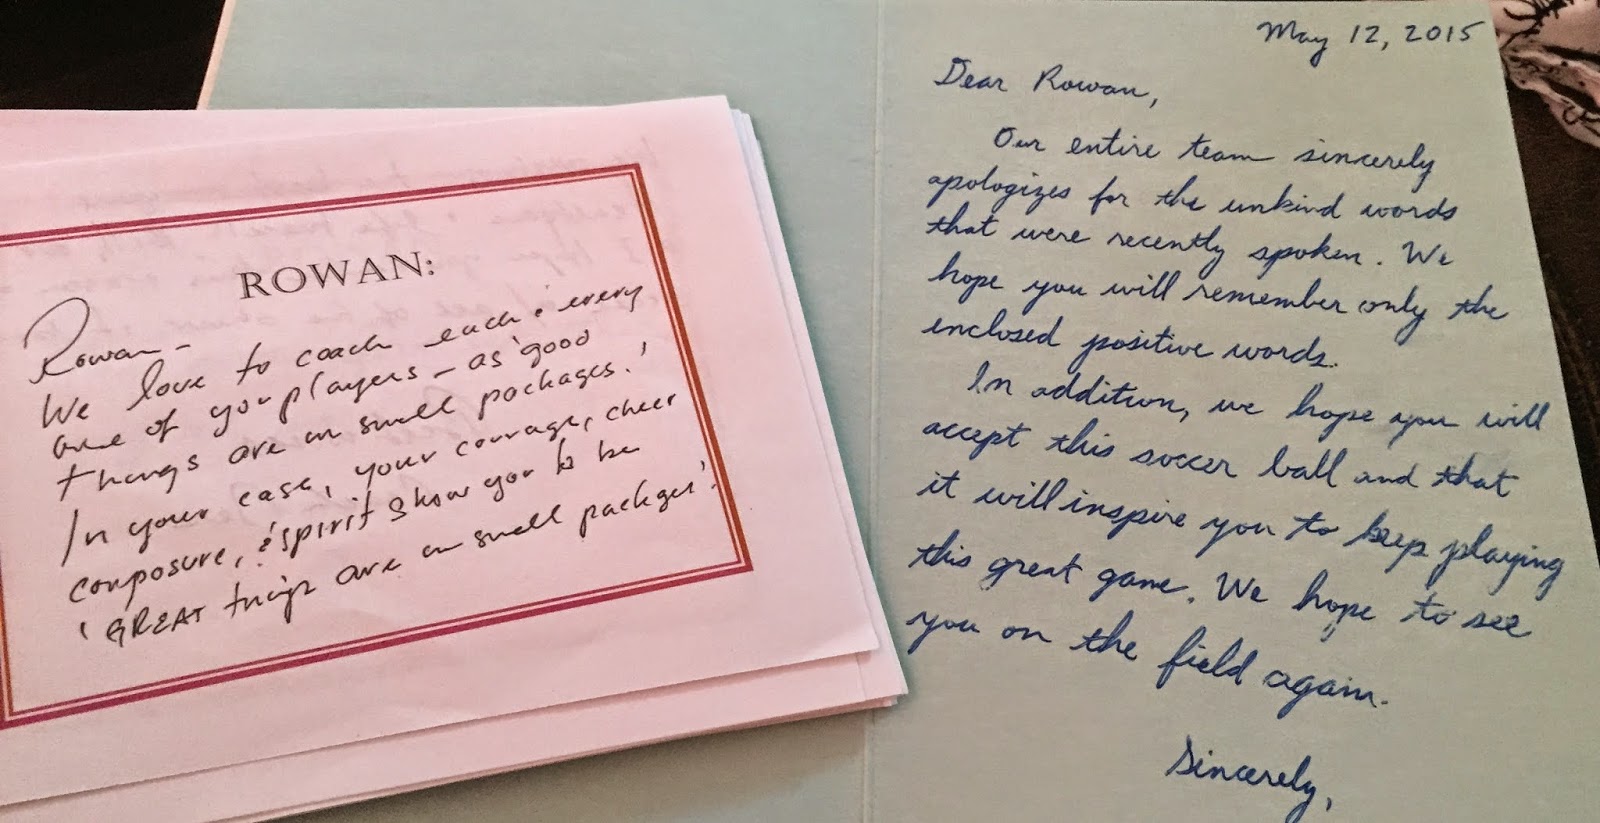 ROWAN:
Rowan -
We love to coach each & every
one of your players - as 'good
things are in small packages.'
In your case, your courage, cheer
composure, & spirit show you to be
'GREAT things are in small packages'.
May 12, 2015
Dear Rowan,
Our entire team sincerely
apologizes for the unkind words
that were recently spoken. We
hope you will remember only the
enclosed positive words.
In addition, we hope you will
accept this soccer ball and that
it will inspire you to keep playing
this great game. We hope to see
you on the field again.
Sincerely,